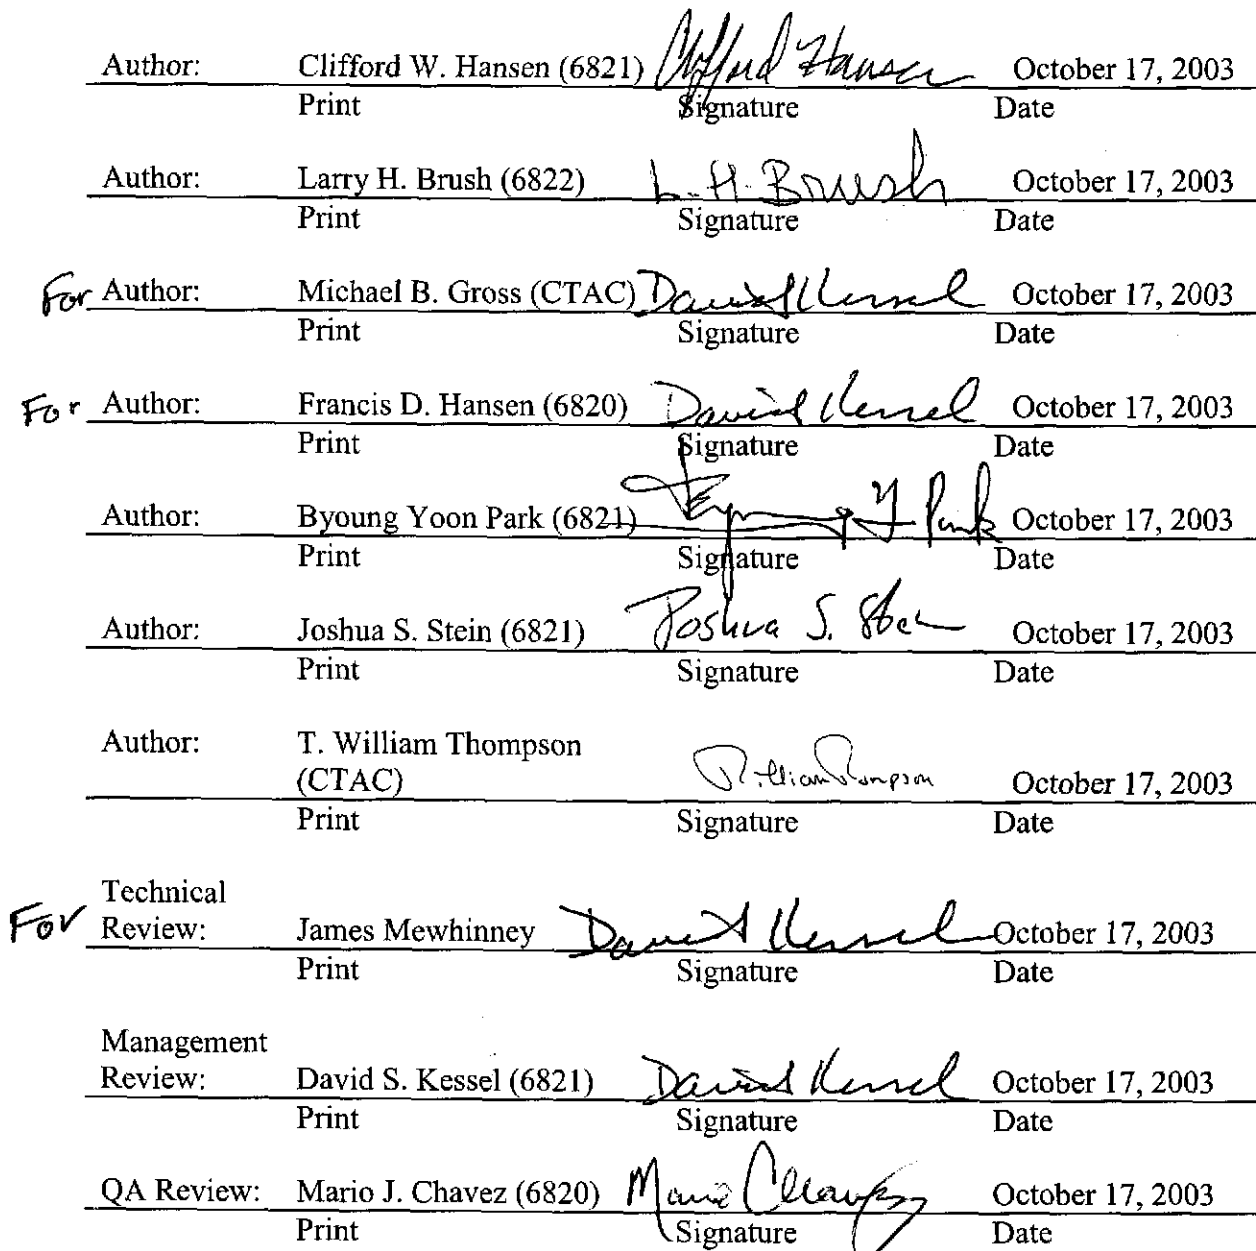 Author: Clifford W. Hansen (6821) Clifford Hansen October 17, 2003
Print Signature Date
Author: Larry H. Brush (6822) L. H. Brush October 17, 2003
Print Signature Date
For Author: Michael B. Gross (CTAC) David Kessel October 17, 2003
Print Signature Date
For Author: Francis D. Hansen (6820) David Kessel October 17, 2003
Print Signature Date
Author: Byoung Yoon Park (6821) Y Park October 17, 2003
Print Signature Date
Author: Joshua S. Stein (6821) Joshua S. Stein October 17, 2003
Print Signature Date
Author: T. William Thompson
(CTAC) T. William Thompson October 17, 2003
Print Signature Date
Technical
For Review: James Mewhinney David Kessel October 17, 2003
Print Signature Date
Management
Review: David S. Kessel (6821) David Kessel October 17, 2003
Print Signature Date
QA Review: Mario J. Chavez (6820) Mario Chavez October 17, 2003
Print Signature Date